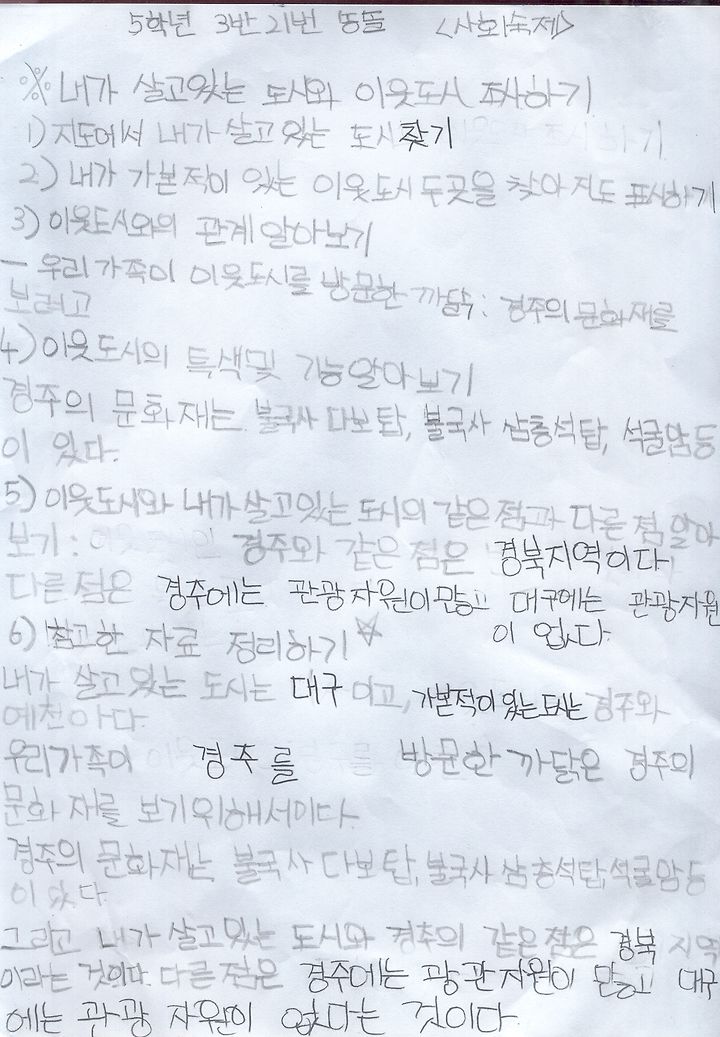 5학년 3반 21번 <사회숙제>
※ 내가 살고있는 도시와 이웃도시 조사하기
1) 지도에서 내가 살고 있는 도시찾기
2) 내가 가본적이 있는 이웃도시 두곳을 찾아 지도 표시하기
3) 이웃도시와의 관계 알아보기
- 우리 가족이 이웃도시를 방문한 까닭 : 경주의 문화재를
보려고
4) 이웃도시의 특색및 기능알아보기
경주의 문화재는 불국사 다보탑, 불국사 삼층석탑, 석굴암등
이 있다.
5) 이웃도시와 내가 살고있는 도시의 같은 점과 다른 점 알아
보기 : 경주와 같은 점은 경북지역이다.
다른 점은 경주에는 관광자원이 많고 대구에는 관광자원
이 없다.
6) 참고한 자료 정리하기 ☆
내가 살고 있는 도시는 대구 이고, 가본적이 있는 도시는 경주와
예천이다.
우리가족이 경주를 방문한 까닭은 경주의
문화재를 보기위해서이다.
경주의 문화재는 불국사 다보탑, 불국사 삼층석탑, 석굴암등
이 있다.
그리고 내가 살고있는 도시와 경주의 같은 점은 경북 지역
이라는 것이다. 다른 점은 경주에는 광관자원이 많고 대구
에는 관광 자원이 없다는 것이다.